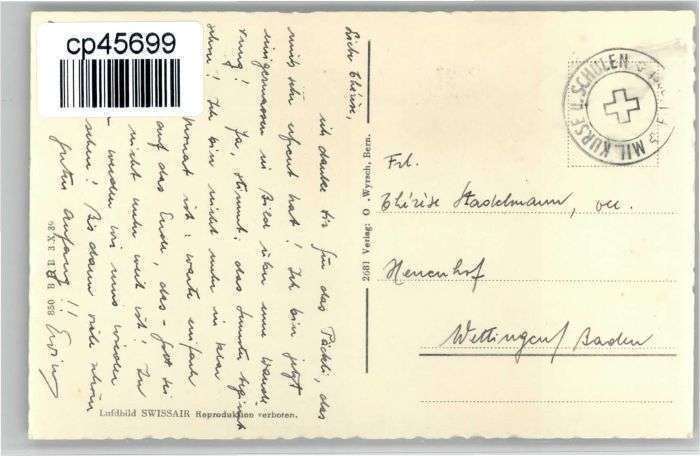 cp45699
Liebe Thérèse,
ich danke dir für das Päckli, das
mich sehr erfreut hat! Ich bin jetzt
einigermassen im Bild über eure
Ja, stimmt, das
schon! Ich bin nicht mehr in
Monat ist: warte einfach
auf das Ende, das - Gott sei
nicht mehr weit ist! In
werden wir uns wieder
sehen! Bis dann viele
guten Anfang!! Erwin
Luftbild SWISSAIR Reproduktion verboten.
850 B R B 3 X 39
2681 Verlag: O. Wyrsch, Bern.
MIL. KURSE U. SCHULEN
Frl.
Thérèse Stadelmann,
Herrenhof
Wettingen/Baden